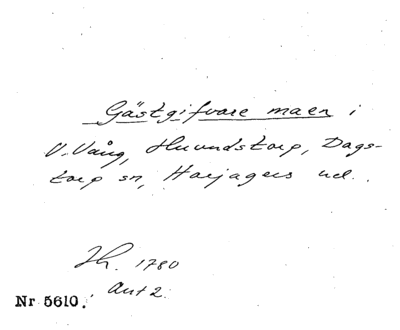 Gästgifvare maen i
V. Vång, Huvudstorp, Dags-
torp sn, Harjagers hd.
Th. 1780
Ant 2.
Nr 5610.